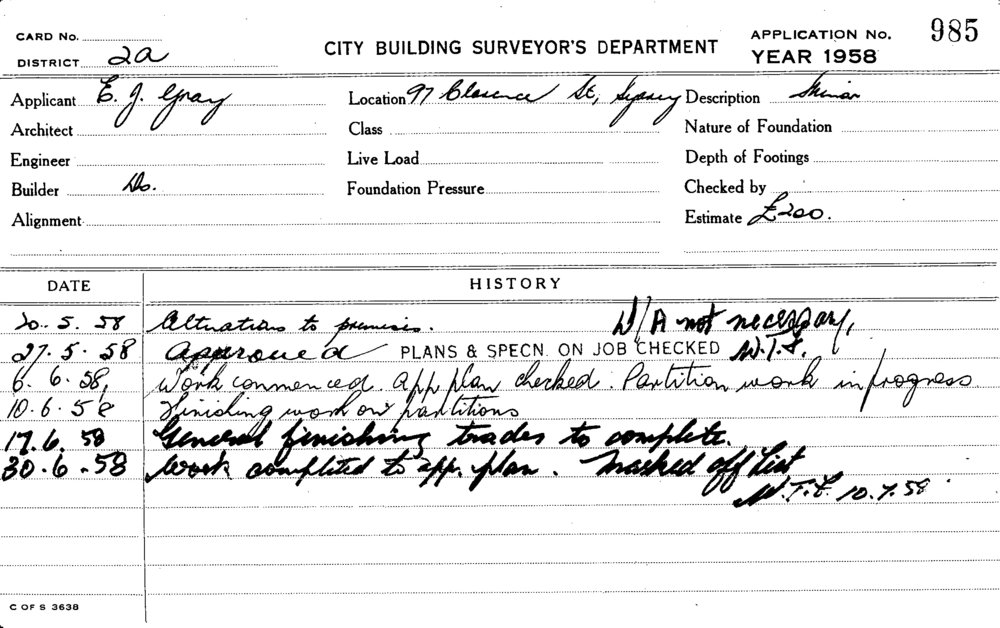 CARD No.
DISTRICT 2a
CITY BUILDING SURVEYOR'S DEPARTMENT
APPLICATION No. 985
YEAR 1958
Applicant E. J. Gray
Location 97 Clarence St, Sydney
Description Minor
Architect
Class
Nature of Foundation
Engineer
Live Load
Depth of Footings
Builder Do.
Foundation Pressure
Checked by
Alignment
Estimate £200.
DATE HISTORY
20. 5. 58 Alterations to premises. D/A not necessary,
27. 5. 58 Approved PLANS & SPECN. ON JOB CHECKED
6. 6. 58, Work commenced. App plan checked. Partition work in progress
10. 6. 58 Finishing work on partitions
17. 6. 58 General finishing trades to complete.
30. 6. 58 Work completed to app. plan. Marked off List
10. 7. 58
C OF S 3638